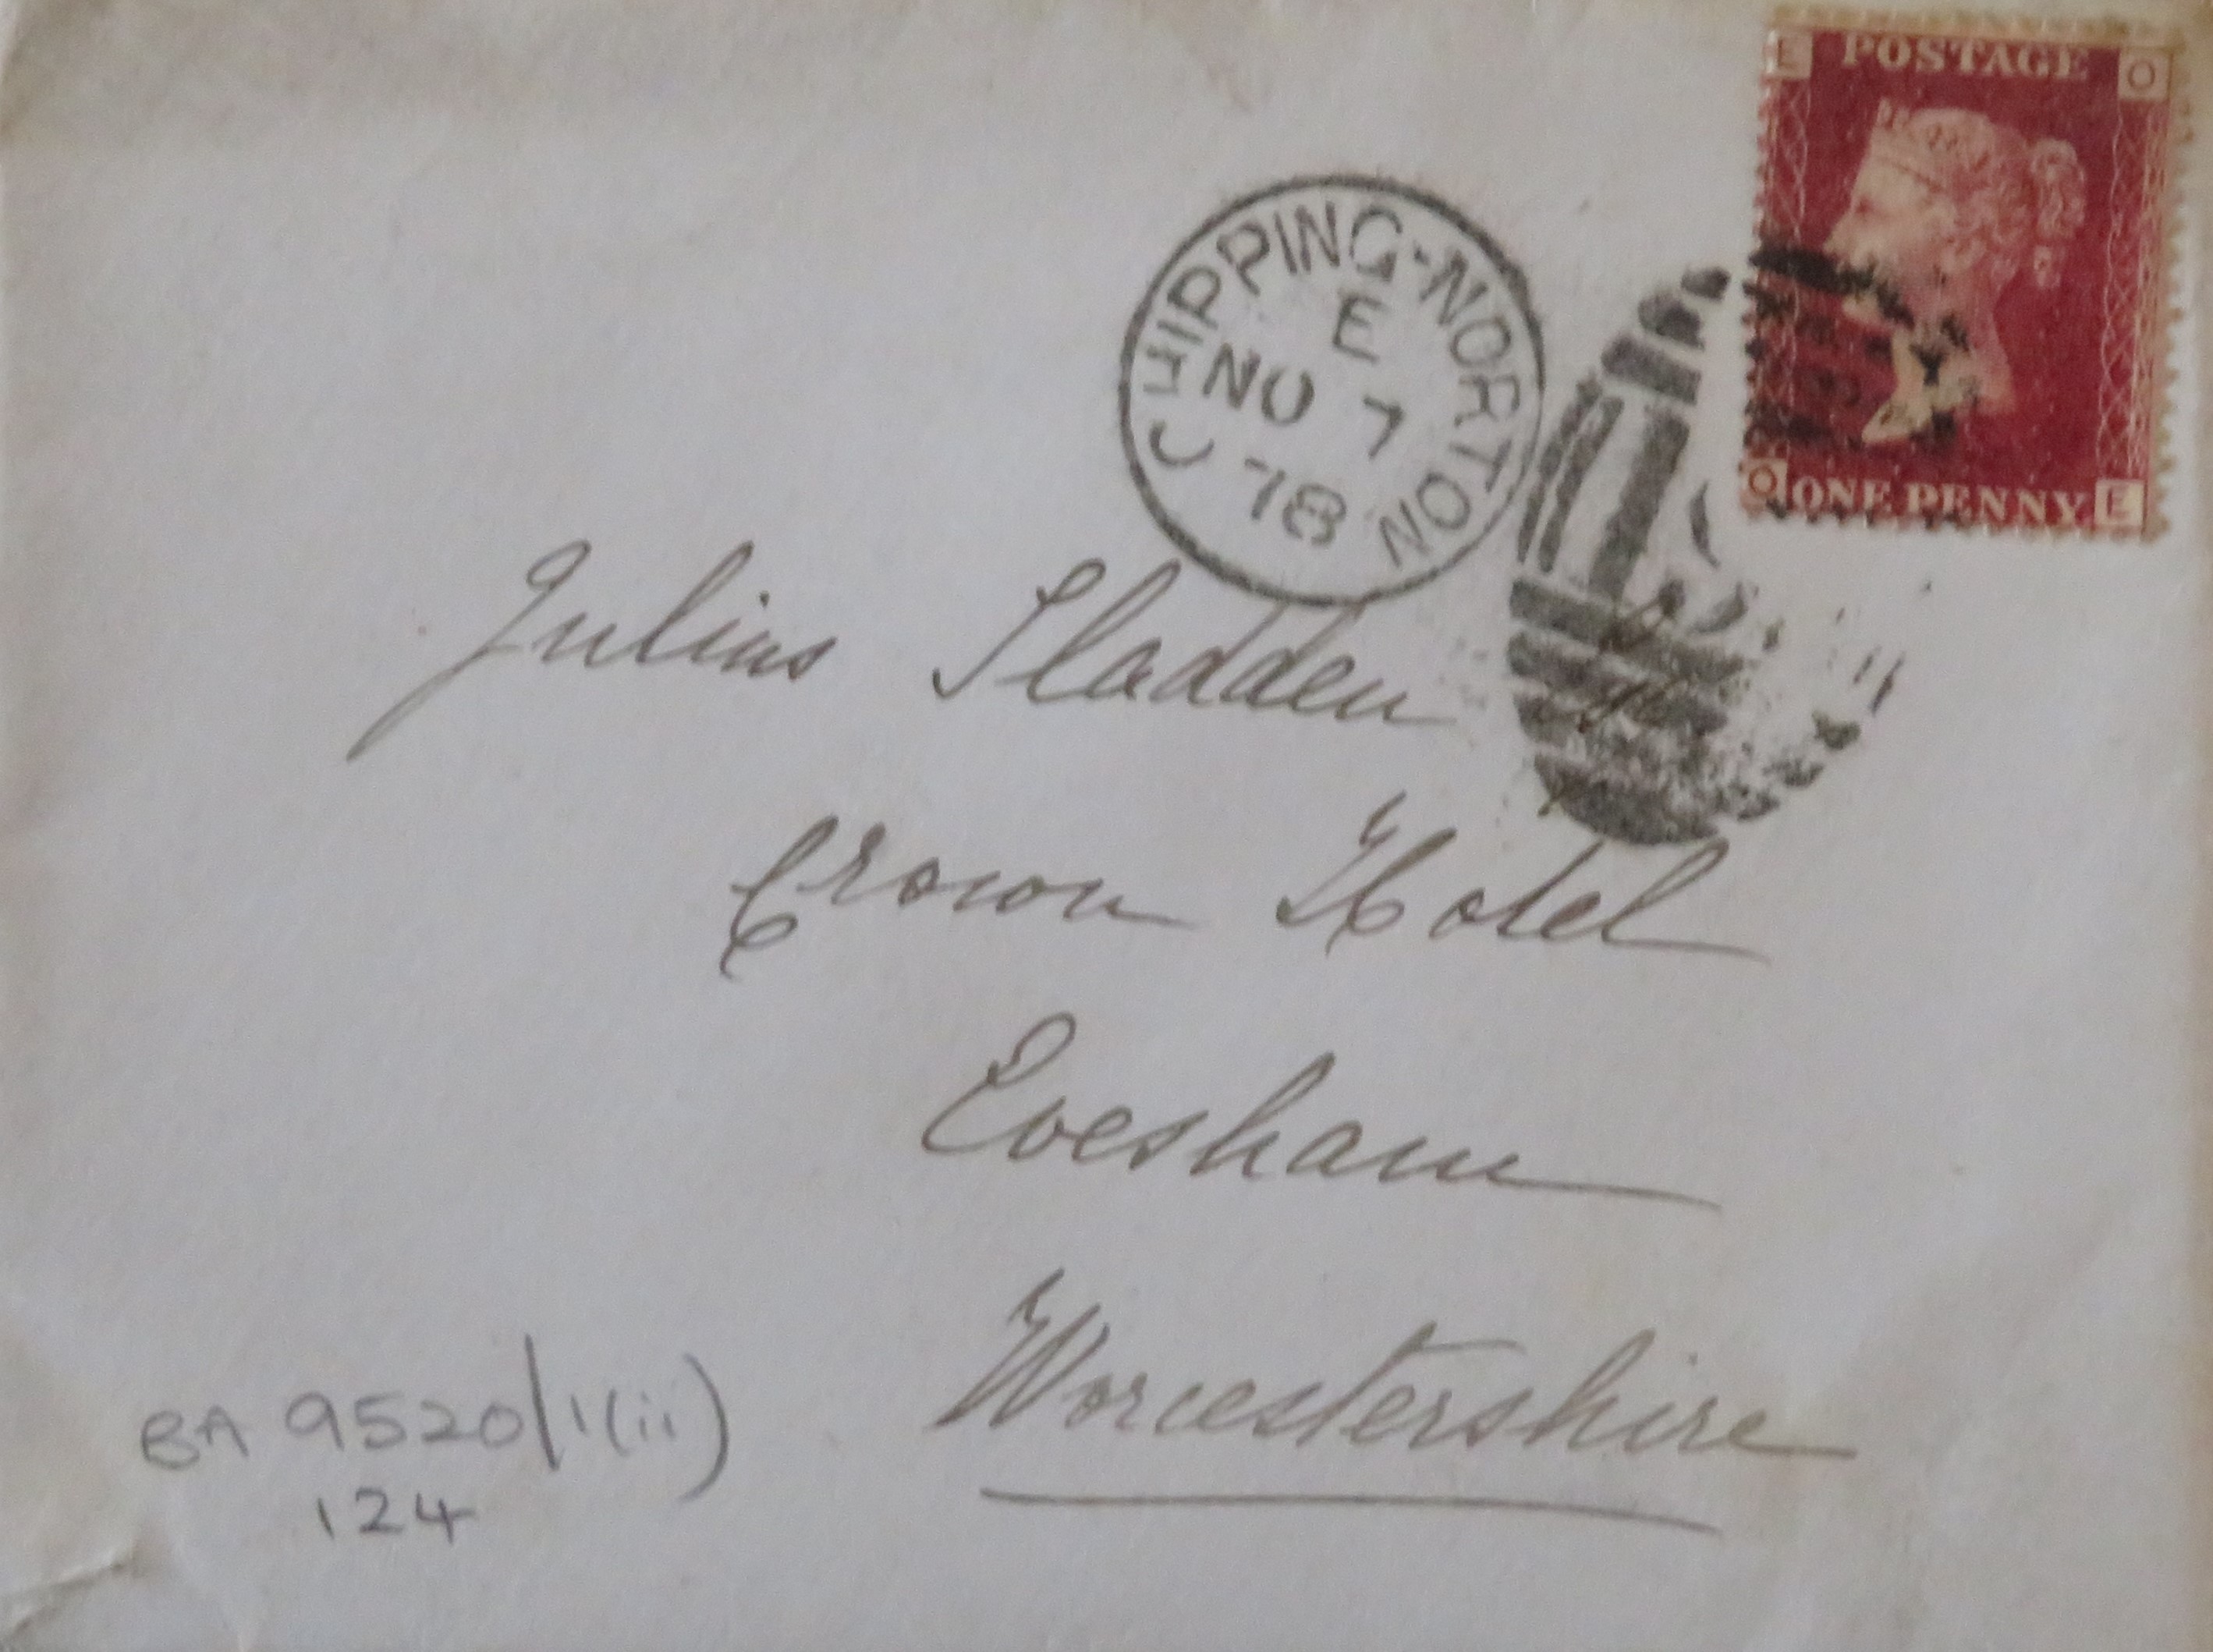 E POSTAGE O
O ONE PENNY E
CHIPPING-NORTON
E
NO 7
78
Julius Sladden
Crown Hotel
Evesham
Worcestershire
BA 9520/1(ii)
124